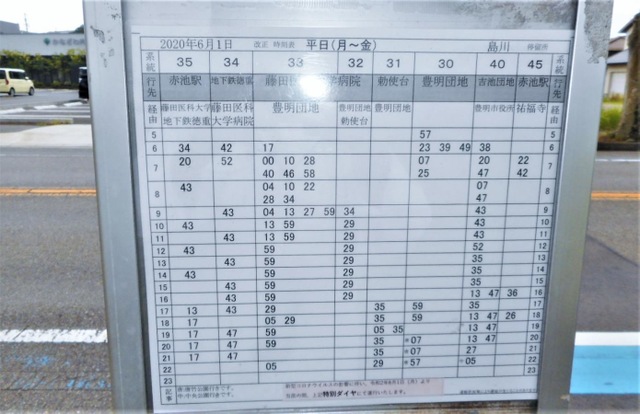 2020年6月1日 改正 時刻表 平日(月～金) 島川 停留所
系統 35 34 33 32 31 30 40 45 系統
行先 赤池駅 地下鉄徳重 藤田医 学病院 勅使台 豊明団地 吉池団地 赤池駅 行先
経由 藤田医科大学 地下鉄徳重 藤田医科大学病院 豊明団地 豊明団地 勅使台 豊明団地 豊明市役所 祐福寺 経由
5 57 5
6 34 42 17 23 39 49 38 6
7 20 52 00 10 28 07 20 22 7
40 46 58 25 47 42
8 43 04 10 22 07 8
28 34 47
9 43 04 13 27 59 34 43 9
10 43 13 59 29 43 10
11 43 13 59 29 43 11
12 43 59 29 52 12
13 43 59 29 35 13
14 43 59 29 35 14
15 43 59 29 35 15
16 43 59 29 13 47 36 16
17 13 43 29 35 59 35 17
18 17 05 29 35 59 13 47 26 18
19 17 47 59 05 35 13 47 19
20 17 47 59 35 07 13 47 20
21 17 47 35 07 27 21
22 05 29 57 05 22
23 23
記事
特別ダイヤ